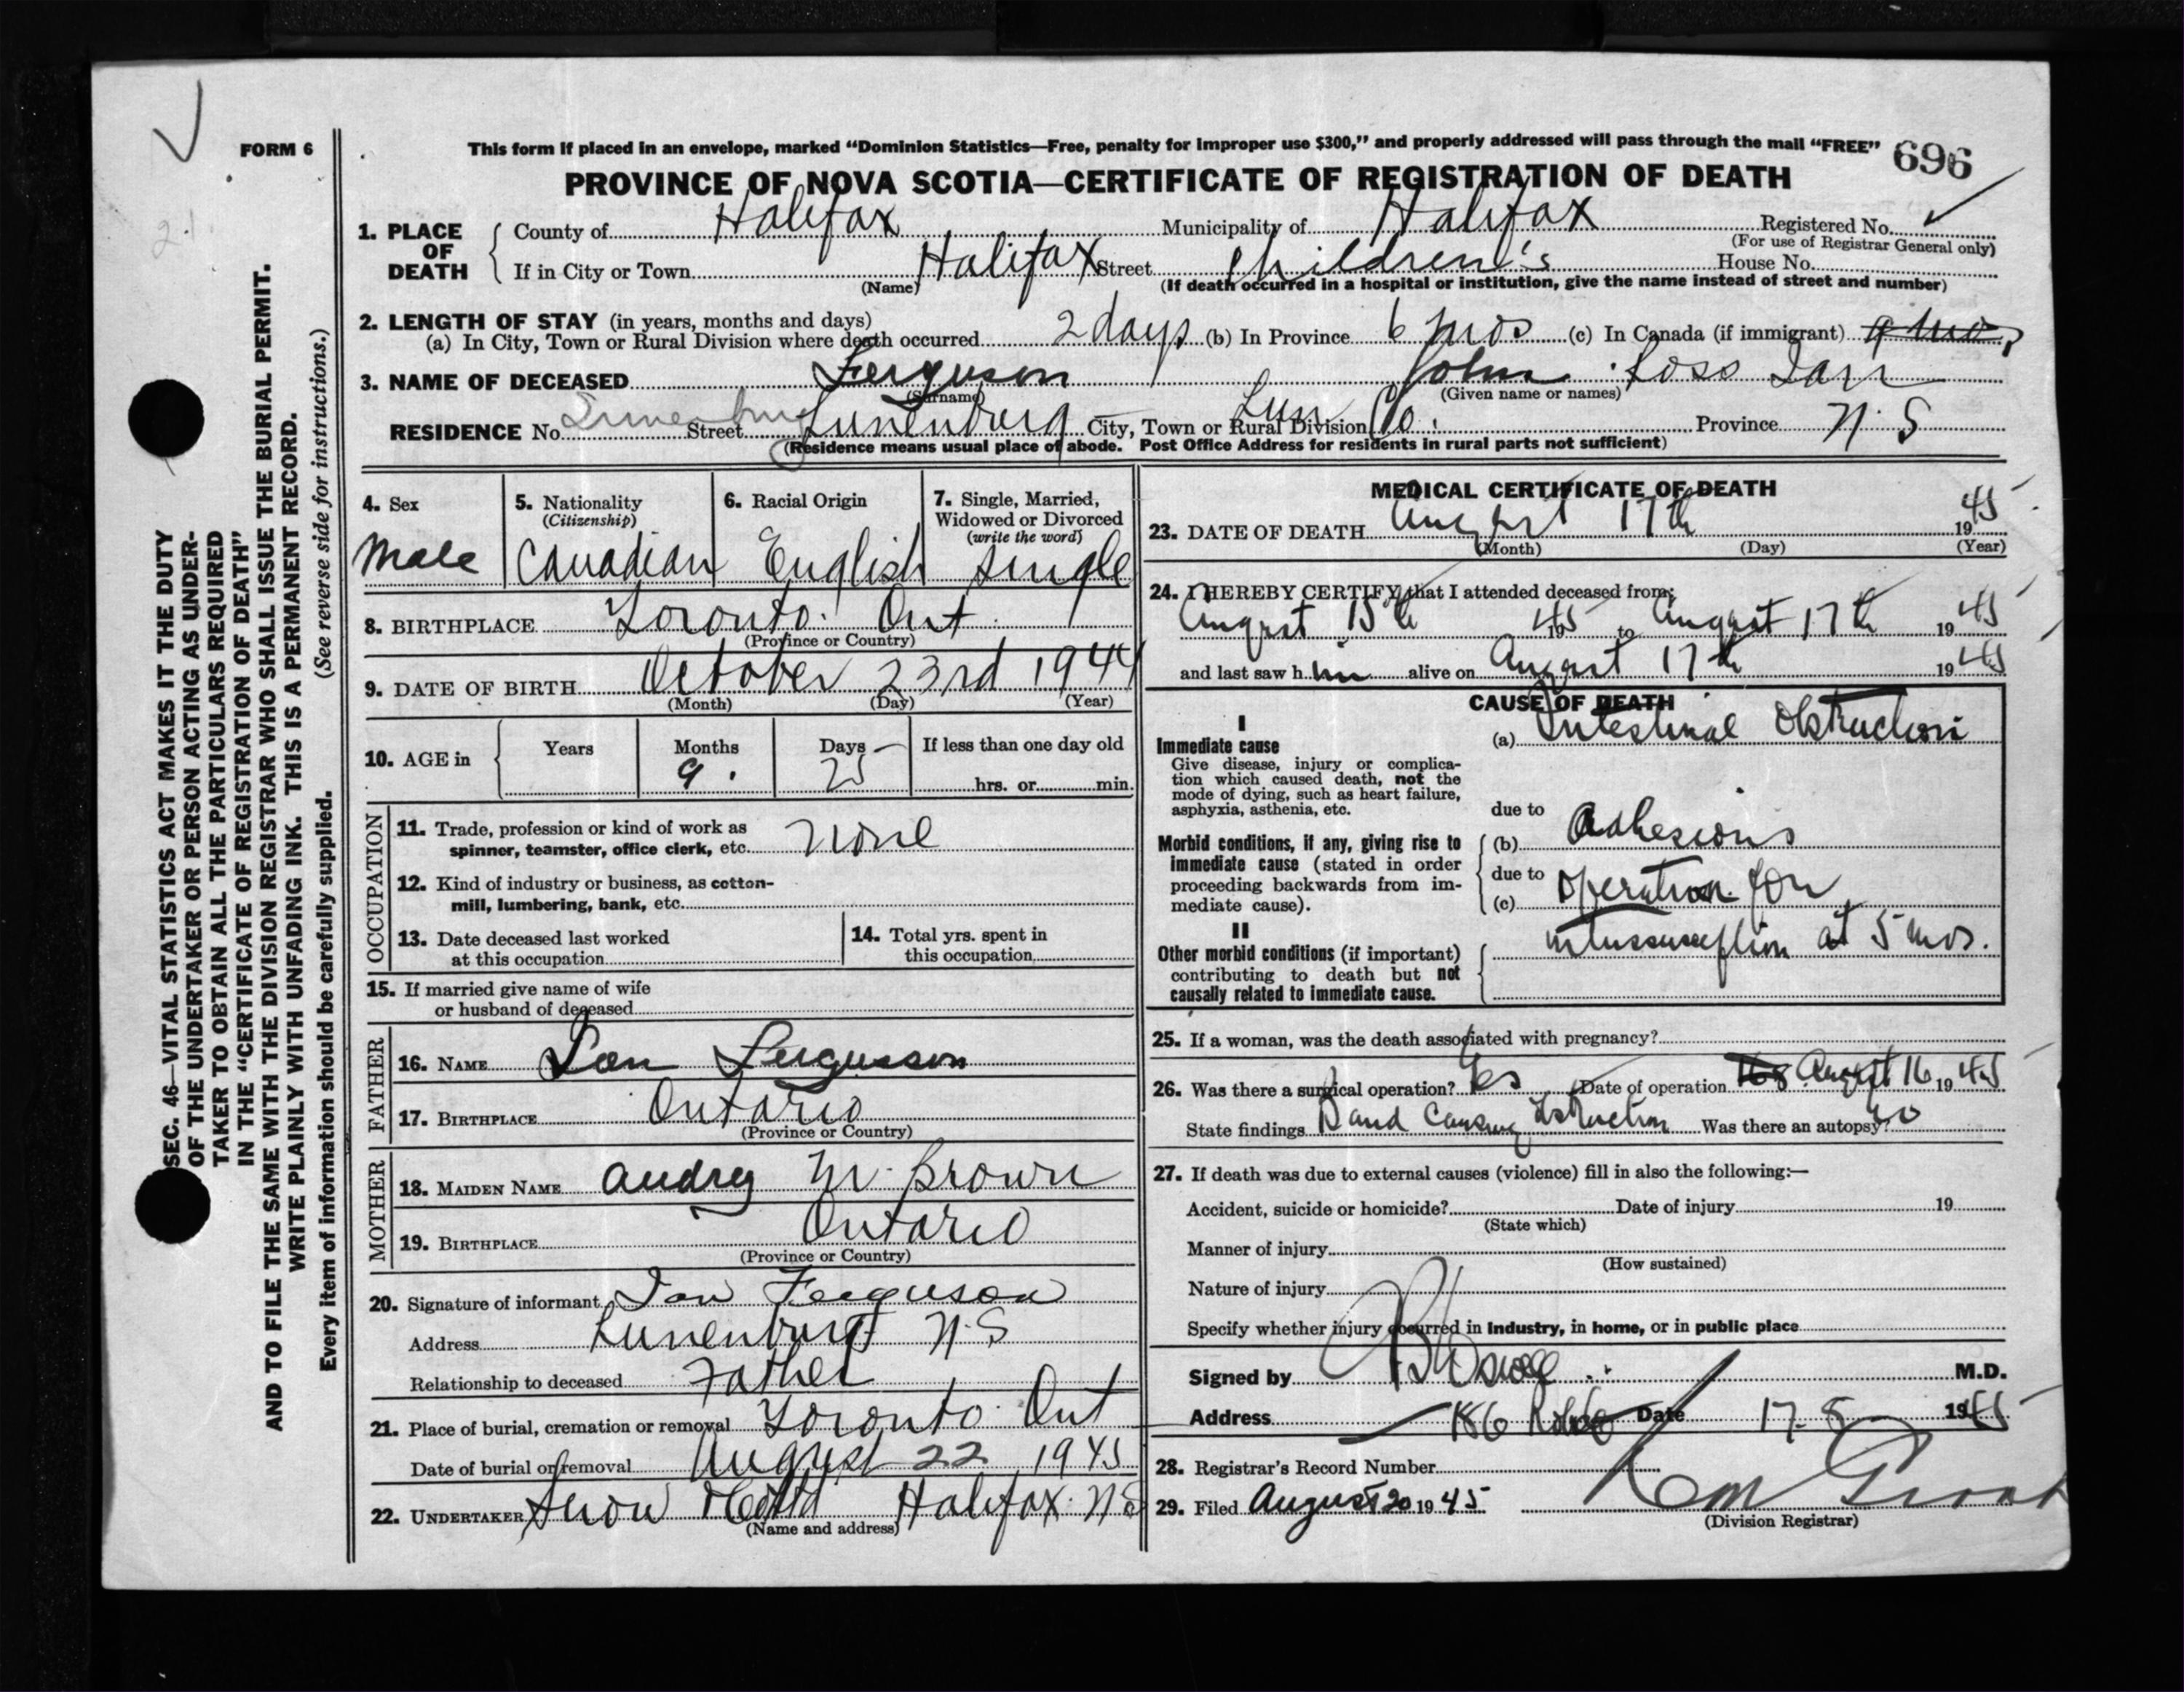 FORM 6
This form if placed in an envelope, marked "Dominion Statistics—Free, penalty for improper use $300," and properly addressed will pass through the mail "FREE"
696
PROVINCE OF NOVA SCOTIA—CERTIFICATE OF REGISTRATION OF DEATH
1. PLACE OF DEATH
County of Halifax Municipality of Halifax Registered No.
(For use of Registrar General only)
If in City or Town Halifax Street Children's House No.
(Name) (If death occurred in a hospital or institution, give the name instead of street and number)
2. LENGTH OF STAY (in years, months and days)
(a) In City, Town or Rural Division where death occurred 2 days (b) In Province 6 mos (c) In Canada (if immigrant) 9 mo
3. NAME OF DECEASED Ferguson John Ross Ian
(Surname) (Given name or names)
RESIDENCE No. Lunenburg Street Lunenburg City, Town or Rural Division Lun Co. Province N.S
(Residence means usual place of abode. Post Office Address for residents in rural parts not sufficient)
4. Sex
Male
5. Nationality
(Citizenship)
Canadian
6. Racial Origin
English
7. Single, Married,
Widowed or Divorced
(write the word)
single
8. BIRTHPLACE Toronto. Ont
(Province or Country)
9. DATE OF BIRTH October 23rd 1944
(Month) (Day) (Year)
10. AGE in
Years Months Days If less than one day old
9 25 hrs. or min.
OCCUPATION
11. Trade, profession or kind of work as
spinner, teamster, office clerk, etc. None
12. Kind of industry or business, as cotton-
mill, lumbering, bank, etc.
13. Date deceased last worked
at this occupation
14. Total yrs. spent in
this occupation
15. If married give name of wife
or husband of deceased
FATHER
16. NAME Ian Fergusson
17. BIRTHPLACE Ontario
(Province or Country)
MOTHER
18. MAIDEN NAME Audrey M. Brown
19. BIRTHPLACE Ontario
(Province or Country)
20. Signature of informant Ian Ferguson
Address Lunenburg N.S
Relationship to deceased Father
21. Place of burial, cremation or removal Toronto Ont
Date of burial or removal August 22 1945
22. UNDERTAKER Snow Halifax. N.S
(Name and address)
MEDICAL CERTIFICATE OF DEATH
23. DATE OF DEATH August 17th 1945
(Month) (Day) (Year)
24. I HEREBY CERTIFY that I attended deceased from;
August 15th 1945 to August 17th 1945
and last saw him alive on August 17th 1945
CAUSE OF DEATH
I
Immediate cause
Give disease, injury or complica-
tion which caused death, not the
mode of dying, such as heart failure,
asphyxia, asthenia, etc.
(a) Intestinal Obstruction
due to
Morbid conditions, if any, giving rise to
immediate cause (stated in order
proceeding backwards from im-
mediate cause).
(b) Adhesions
due to
(c) operation for
intussusception at 5 mos.
II
Other morbid conditions (if important)
contributing to death but not
causally related to immediate cause.
25. If a woman, was the death associated with pregnancy?
26. Was there a surgical operation? Yes Date of operation August 16 1945
State findings Band causing obstruction Was there an autopsy? No
27. If death was due to external causes (violence) fill in also the following:—
Accident, suicide or homicide? Date of injury 19
(State which)
Manner of injury
(How sustained)
Nature of injury
Specify whether injury occurred in industry, in home, or in public place
Signed by M.D.
Address 186 Date 17-8 1945
28. Registrar's Record Number
29. Filed August 20 1945
(Division Registrar)
SEC. 46—VITAL STATISTICS ACT MAKES IT THE DUTY
OF THE UNDERTAKER OR PERSON ACTING AS UNDER-
TAKER TO OBTAIN ALL THE PARTICULARS REQUIRED
IN THE "CERTIFICATE OF REGISTRATION OF DEATH"
AND TO FILE THE SAME WITH THE DIVISION REGISTRAR WHO SHALL ISSUE THE BURIAL PERMIT.
WRITE PLAINLY WITH UNFADING INK. THIS IS A PERMANENT RECORD.
Every item of information should be carefully supplied. (See reverse side for instructions.)